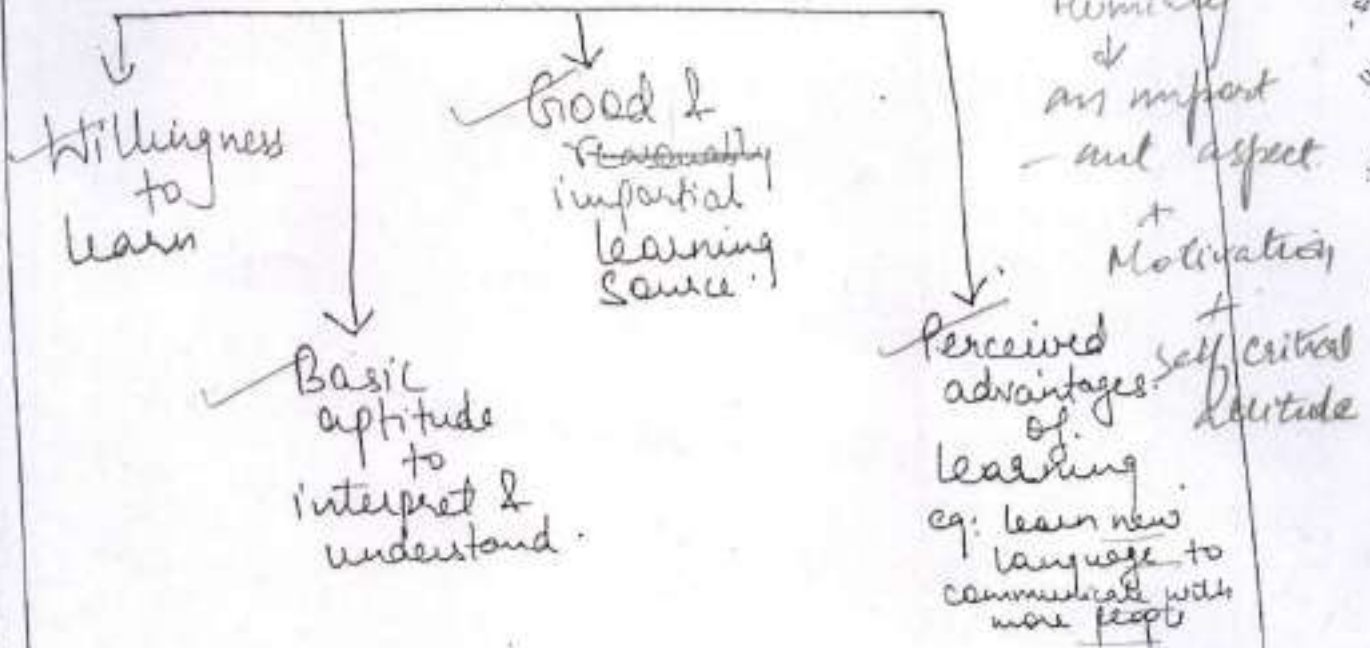 Willingness
to
learn
Basic
aptitude
to
interpret &
understand.
Good &
reasonably
impartial
learning
Source.
Perceived
advantages
of
learning
eg: learn new
language to
communicate with
more people
Humility
an import
- ant aspect
+
Motivation
+
Self critical
attitude